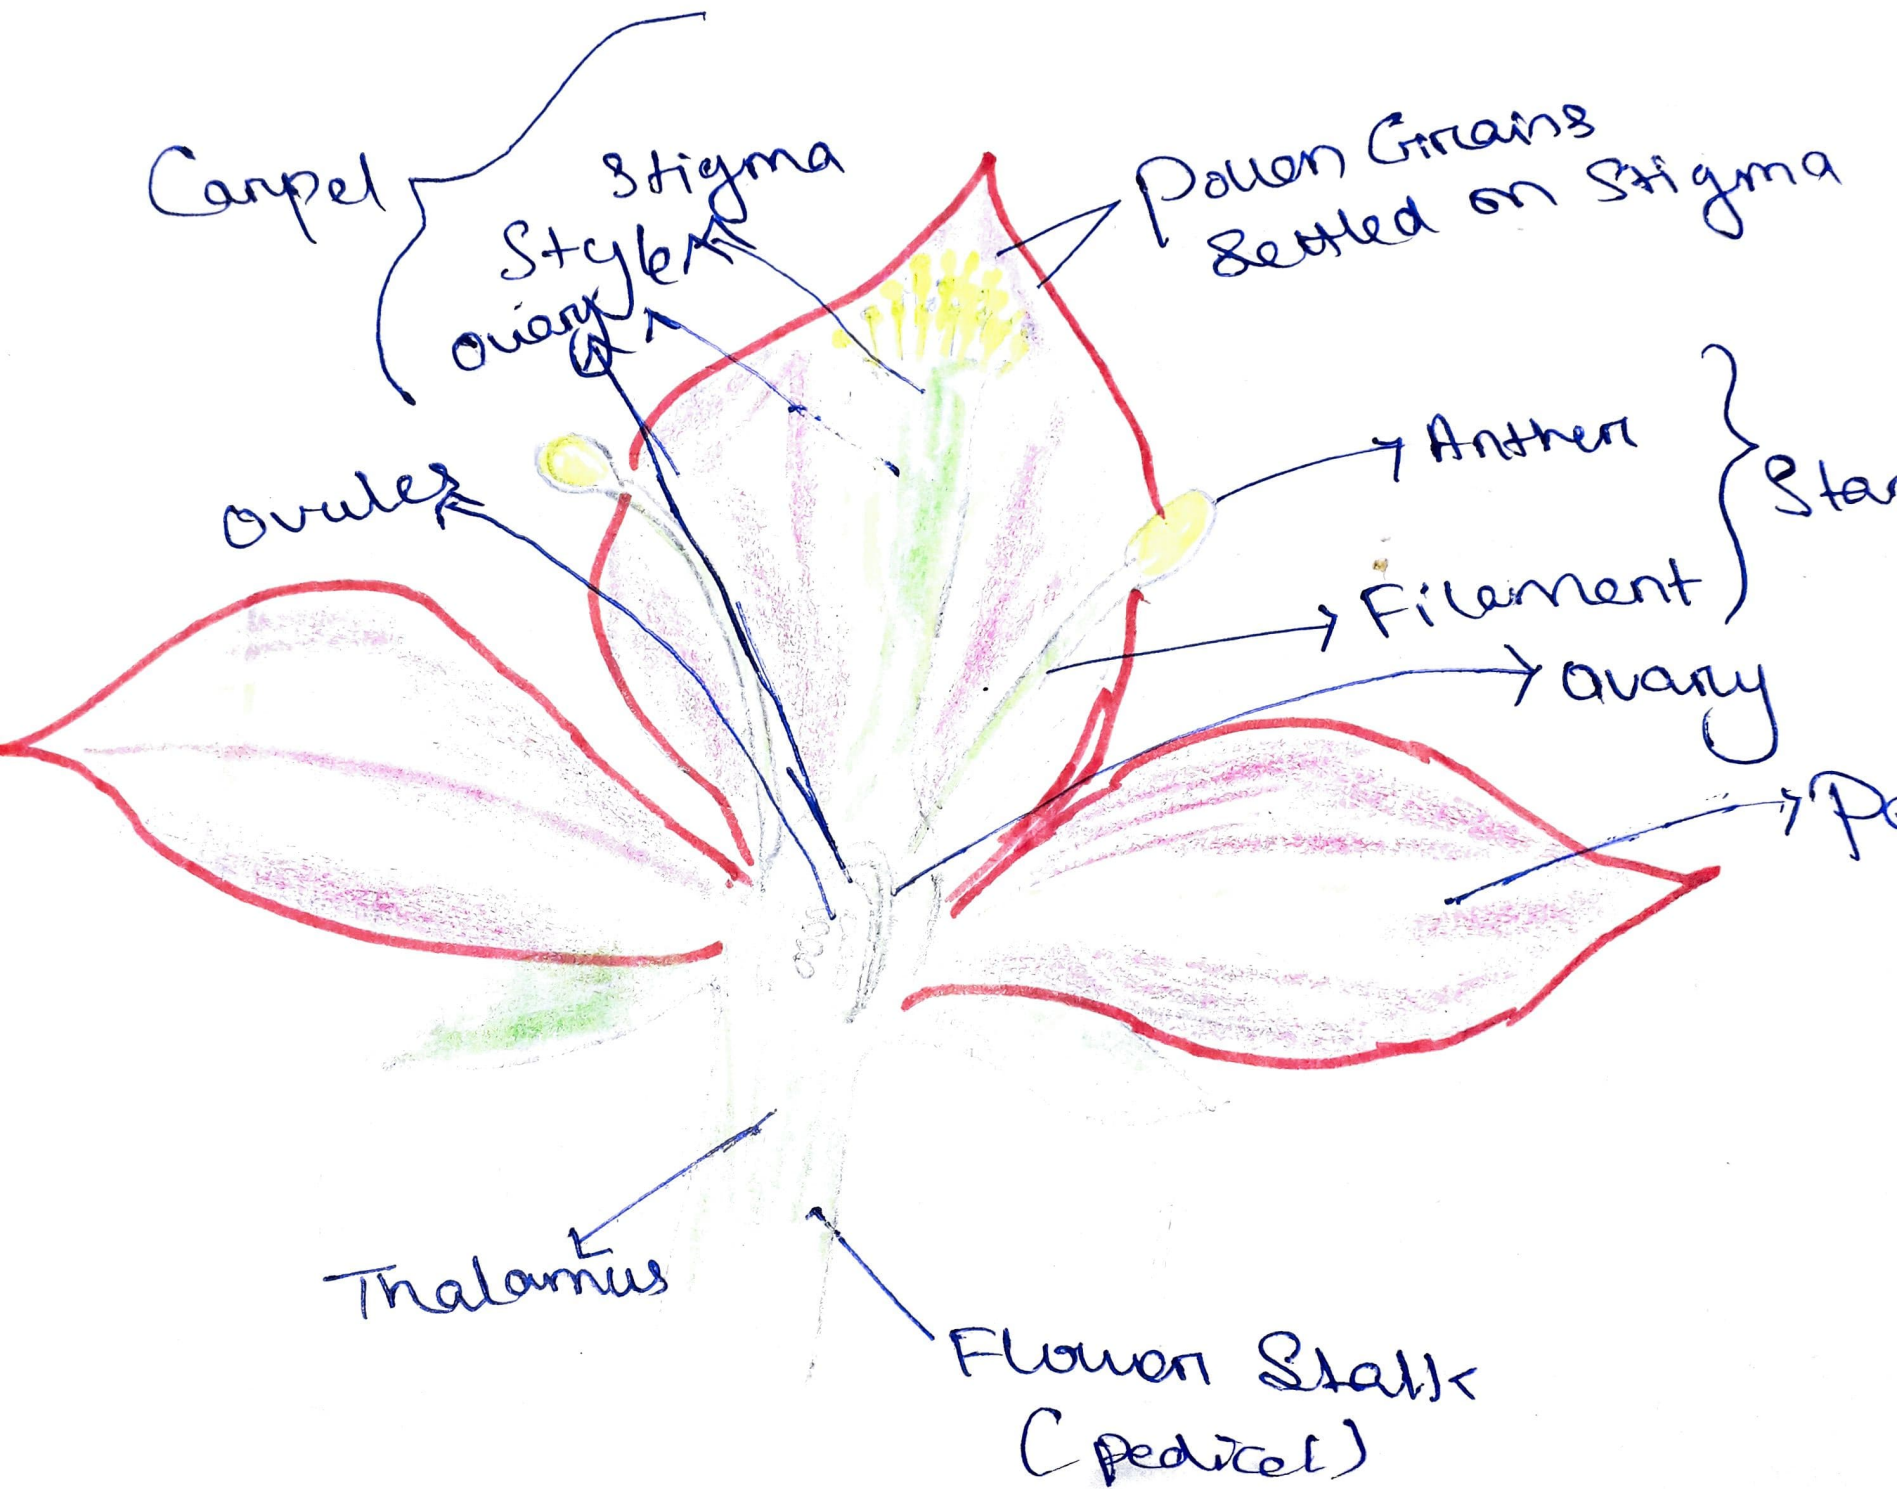 Carpel
Stigma
Style
Oviary
Ovules
Pollen Grains
Settled on Stigma
Anther
Filament
Star
Ovary
Pe
Thalamus
Flower Stalk
(pedicel)